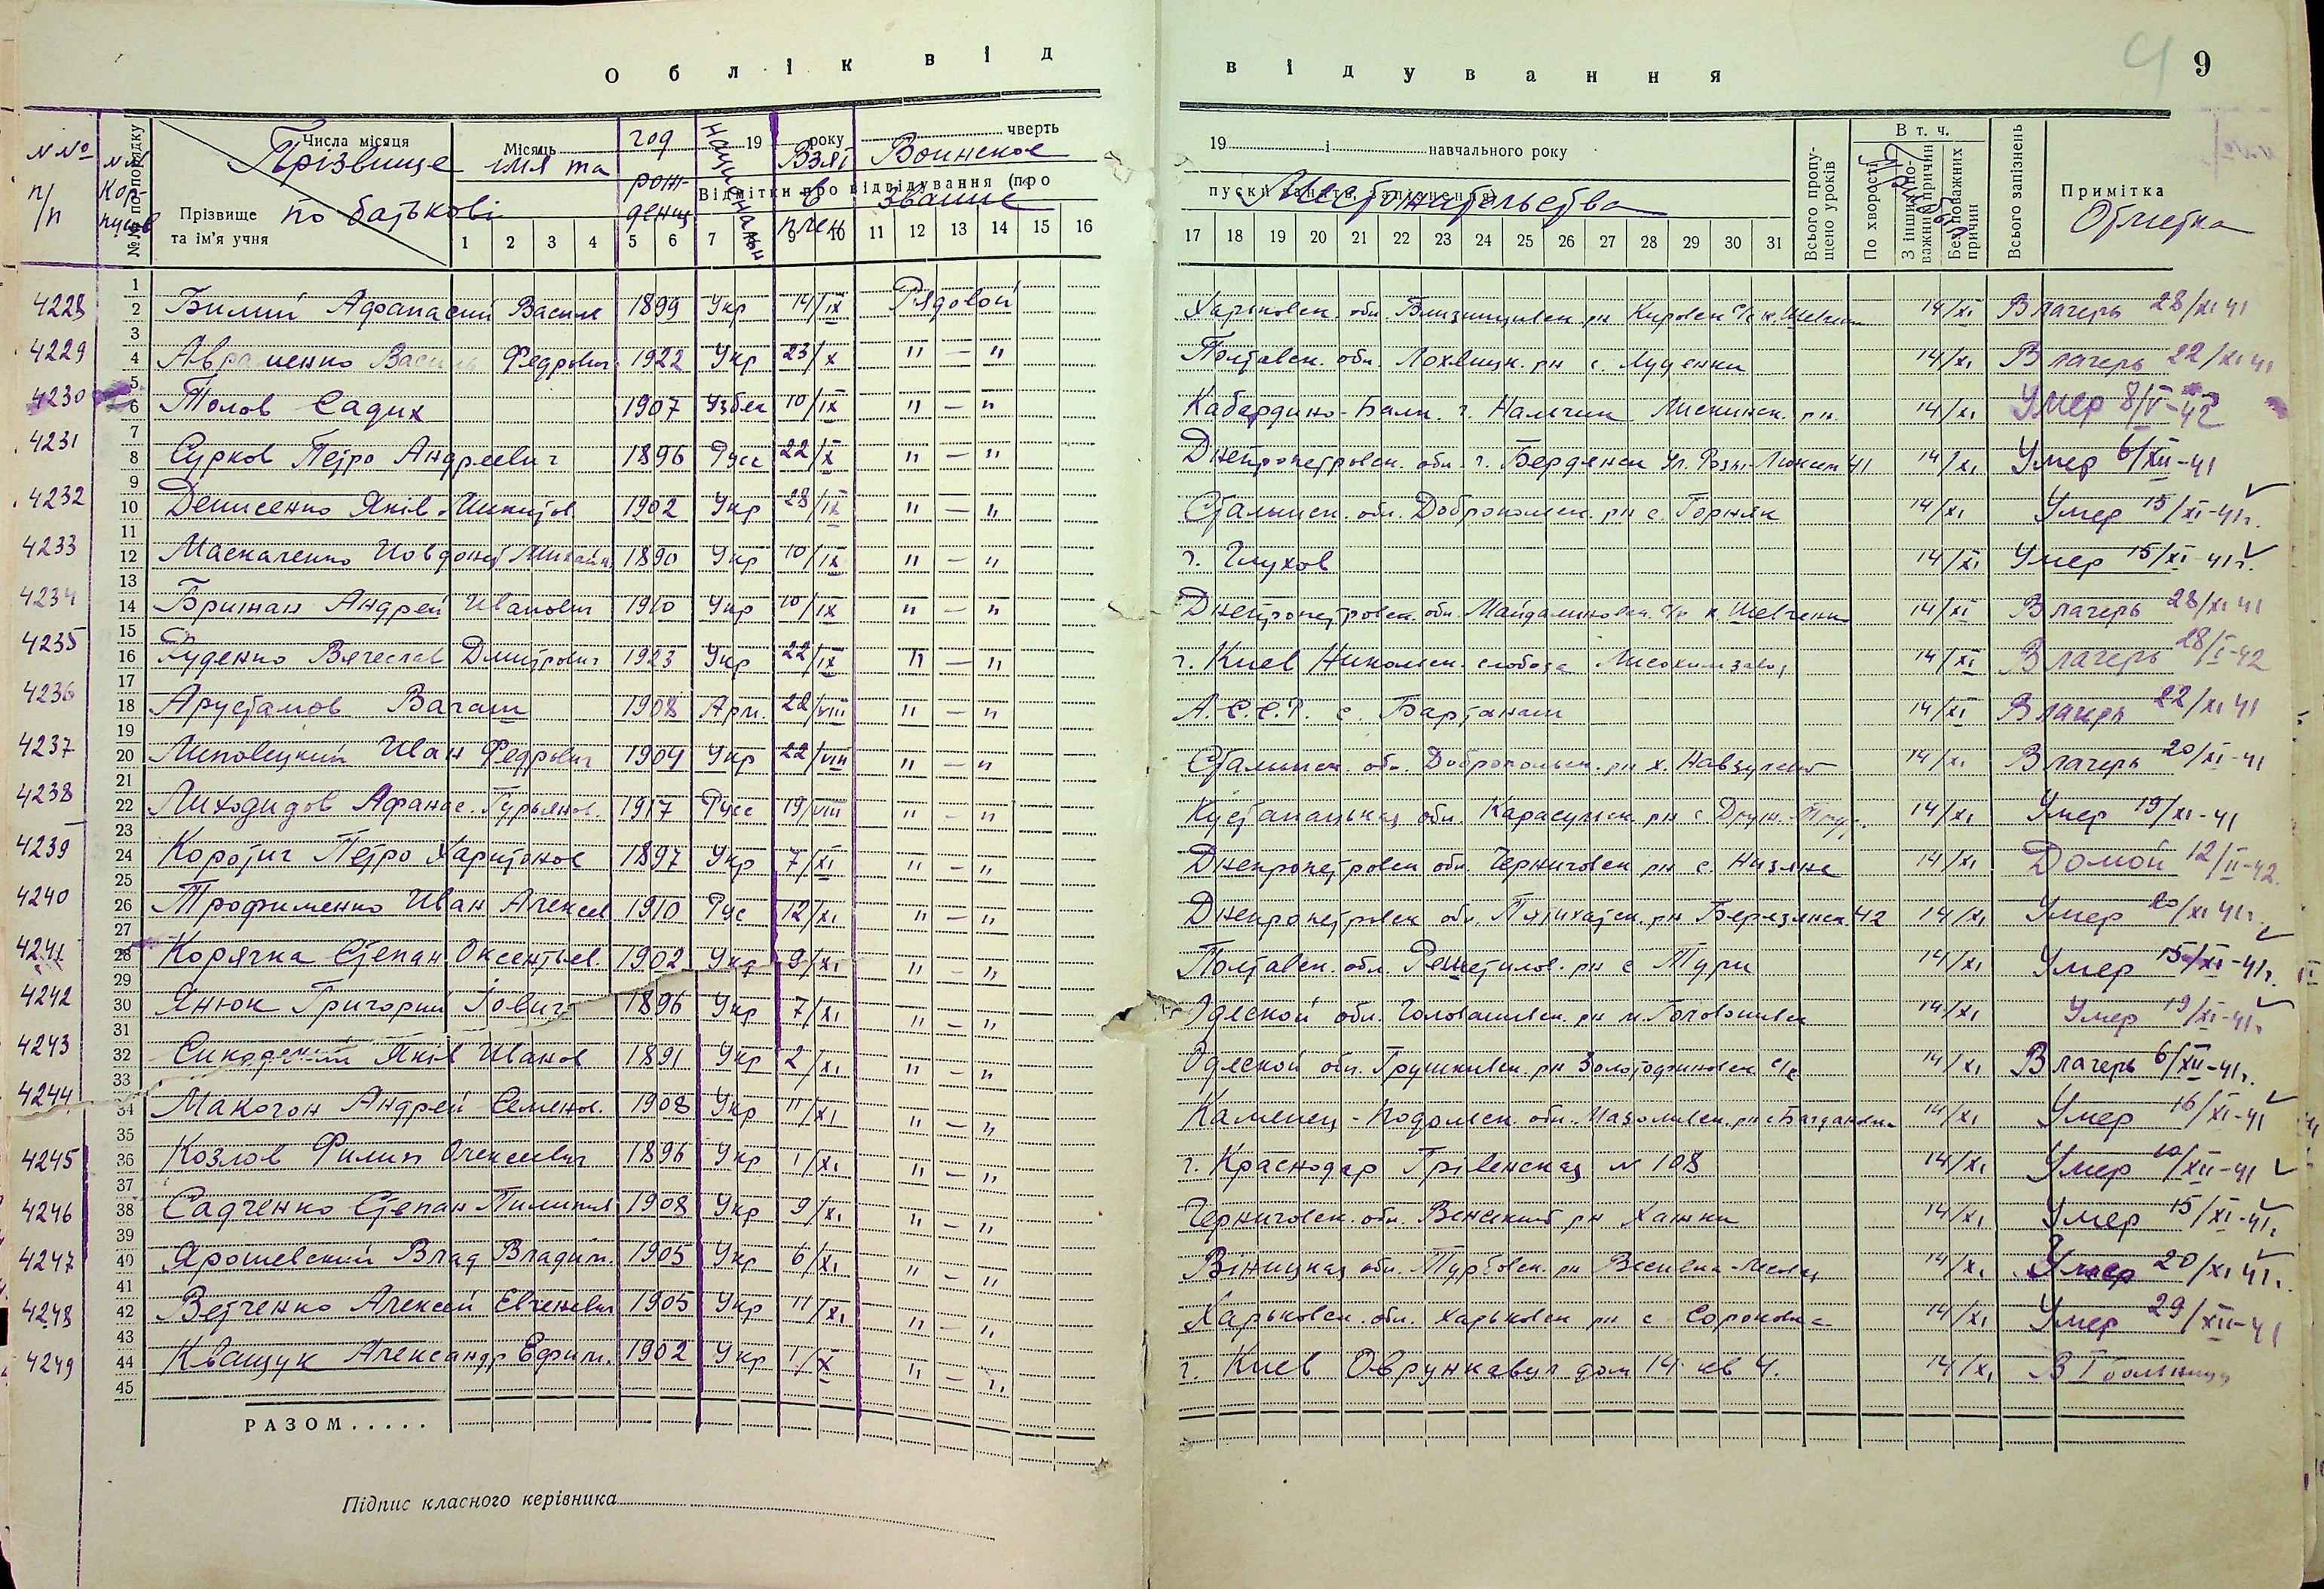 Облік від
відування
9
№№ п/п
№№ Корпусов
№№ по порядку
Числа місяця
Прізвище та ім'я учня
Прізвище імя та по батькові
Місяць
19 року
чверть
год рожденя
Национальн
Взят в плен
Воинское звание
Відмітки про відвідування (про
1 2 3 4 5 6 7 9 10 11 12 13 14 15 16
19 і навчального року
Местожительства
17 18 19 20 21 22 23 24 25 26 27 28 29 30 31
Всього пропущено уроків
В т. ч.
По хворості
З інших поважних причин
Без поважних причин
Всього запізнень
Примітка
Отметка
4228 2 Билий Афанасий Васил 1899 Укр 14/IX Рядовой Харьковск. обл. Близнюцивск. рн Кировск с/с к. 14/XI В лагерь 28/XI 41
4229 4 Авраменко Василь Федрович 1922 Укр 23/X " — " Полтавск. обл. Лохвицк. рн с. Луценки 14/XI В лагерь 22/XI 41
4230 6 Толов Садих 1907 Узбек 10/IX " — " Кабардино-Балк. г. Нальчик Лискинск. рн. 14/XI Умер 8/V-42
4231 8 Сурков Петро Андреевич 1896 Русс 22/X " — " Днепропетровск. обл. г. Бердянск Ул. Розы-Люксем 41 14/XI Умер 6/XII-41
4232 10 Денисенко Яків Микитов 1902 Укр 28/IX " — " Стальнск. обл. Доброполск. рн с. Горняк 14/XI Умер 15/XI-41г.
4233 12 Маскаченко Михайл 1890 Укр 10/IX " — " г. Глухов 14/XI Умер 15/XI-41г.
4234 14 Брижан Андрей Иванович 1910 Укр 10/IX " — " Днепропетровск. обл. Майдалиновск. с/с к. Шевченко 14/XI В лагерь 28/XI 41
4235 16 Руденко Вячеслав Дмитрович 1923 Укр 22/IX " — " г. Киев Никольск. слобода Лисохимзавод 14/XI В лагерь 28/I-42
4236 18 Арустамов Вагаш 1908 Арм. 28/VIII " — " А.С.С.Р. с. Бартанаш 14/XI В лагерь 22/XI 41
4237 20 Липовецкий Иван Федрович 1904 Укр 22/VIII " — " Стальнск. обл. Доброполск. рн х. 14/XI В лагерь 20/XI-41
4238 22 Лиходидов Афанас. Гурьянов. 1917 Русс 19/VIII " — " Кустанайская обл. Карасуйск. рн с Друж. 14/XI Умер 19/XI-41
4239 24 Коротич Петро Харитонов 1897 Укр 7/XI " — " Днепропетровск обл. Черниговск рн с. Низяне 14/XI Домой 12/II-42.
4240 26 Трофименко Иван Алексеев 1910 Рус 12/XI " — " Днепропетровск обл. Пятихатск. рн Березанск 42 14/XI Умер 20/XI 41г.
4241 28 Корячка Степан Оксентьев. 1902 Укр 9/XI " — " Полтавск. обл. Решетилов. рн с Тури 14/XI Умер 15/XI-41г.
4242 30 Янюк Григорий Іович 1896 Укр 7/XI " — " Одеской обл. Голованивск. рн м. Голованивск 14/XI Умер 19/XI-41г.
4243 32 Яків Иванов 1891 Укр 2/XI " — " Одеской обл. Грушкивск. рн с/с 14/XI В лагерь 6/XII-41г.
4244 34 Макогон Андрей Семенов. 1908 Укр 11/XI " — " Каменец-Подольск. обл. рн с Богдановк 14/XI Умер 16/XI-41
4245 36 Козлов Филип Олексеевич 1896 Укр 1/XI " — " г. Краснодар Грівенская № 108 14/XI Умер 10/XII-41
4246 38 Садченко Степан Пилипов 1908 Укр 9/XI " — " Черниговск. обл. рн Хатки 14/XI Умер 15/XI-41г.
4247 40 Ярошевский Влад Владим. 1905 Укр 6/XI " — " Вінницкая обл. Турбовск. рн 14/XI Умер 20/XI 41г.
4248 42 Ветченко Алексей Евгеневич 1905 Укр 11/XI " — " Харьковск. обл. Харьковск рн с Сороковка 14/XI Умер 29/XII-41
4249 44 Кващук Александр Ефим. 1902 Укр 1/X " — " г. Киев дом 14 кв 4. 14/XI В I больницу
РАЗОМ.....
Підпис класного керівника